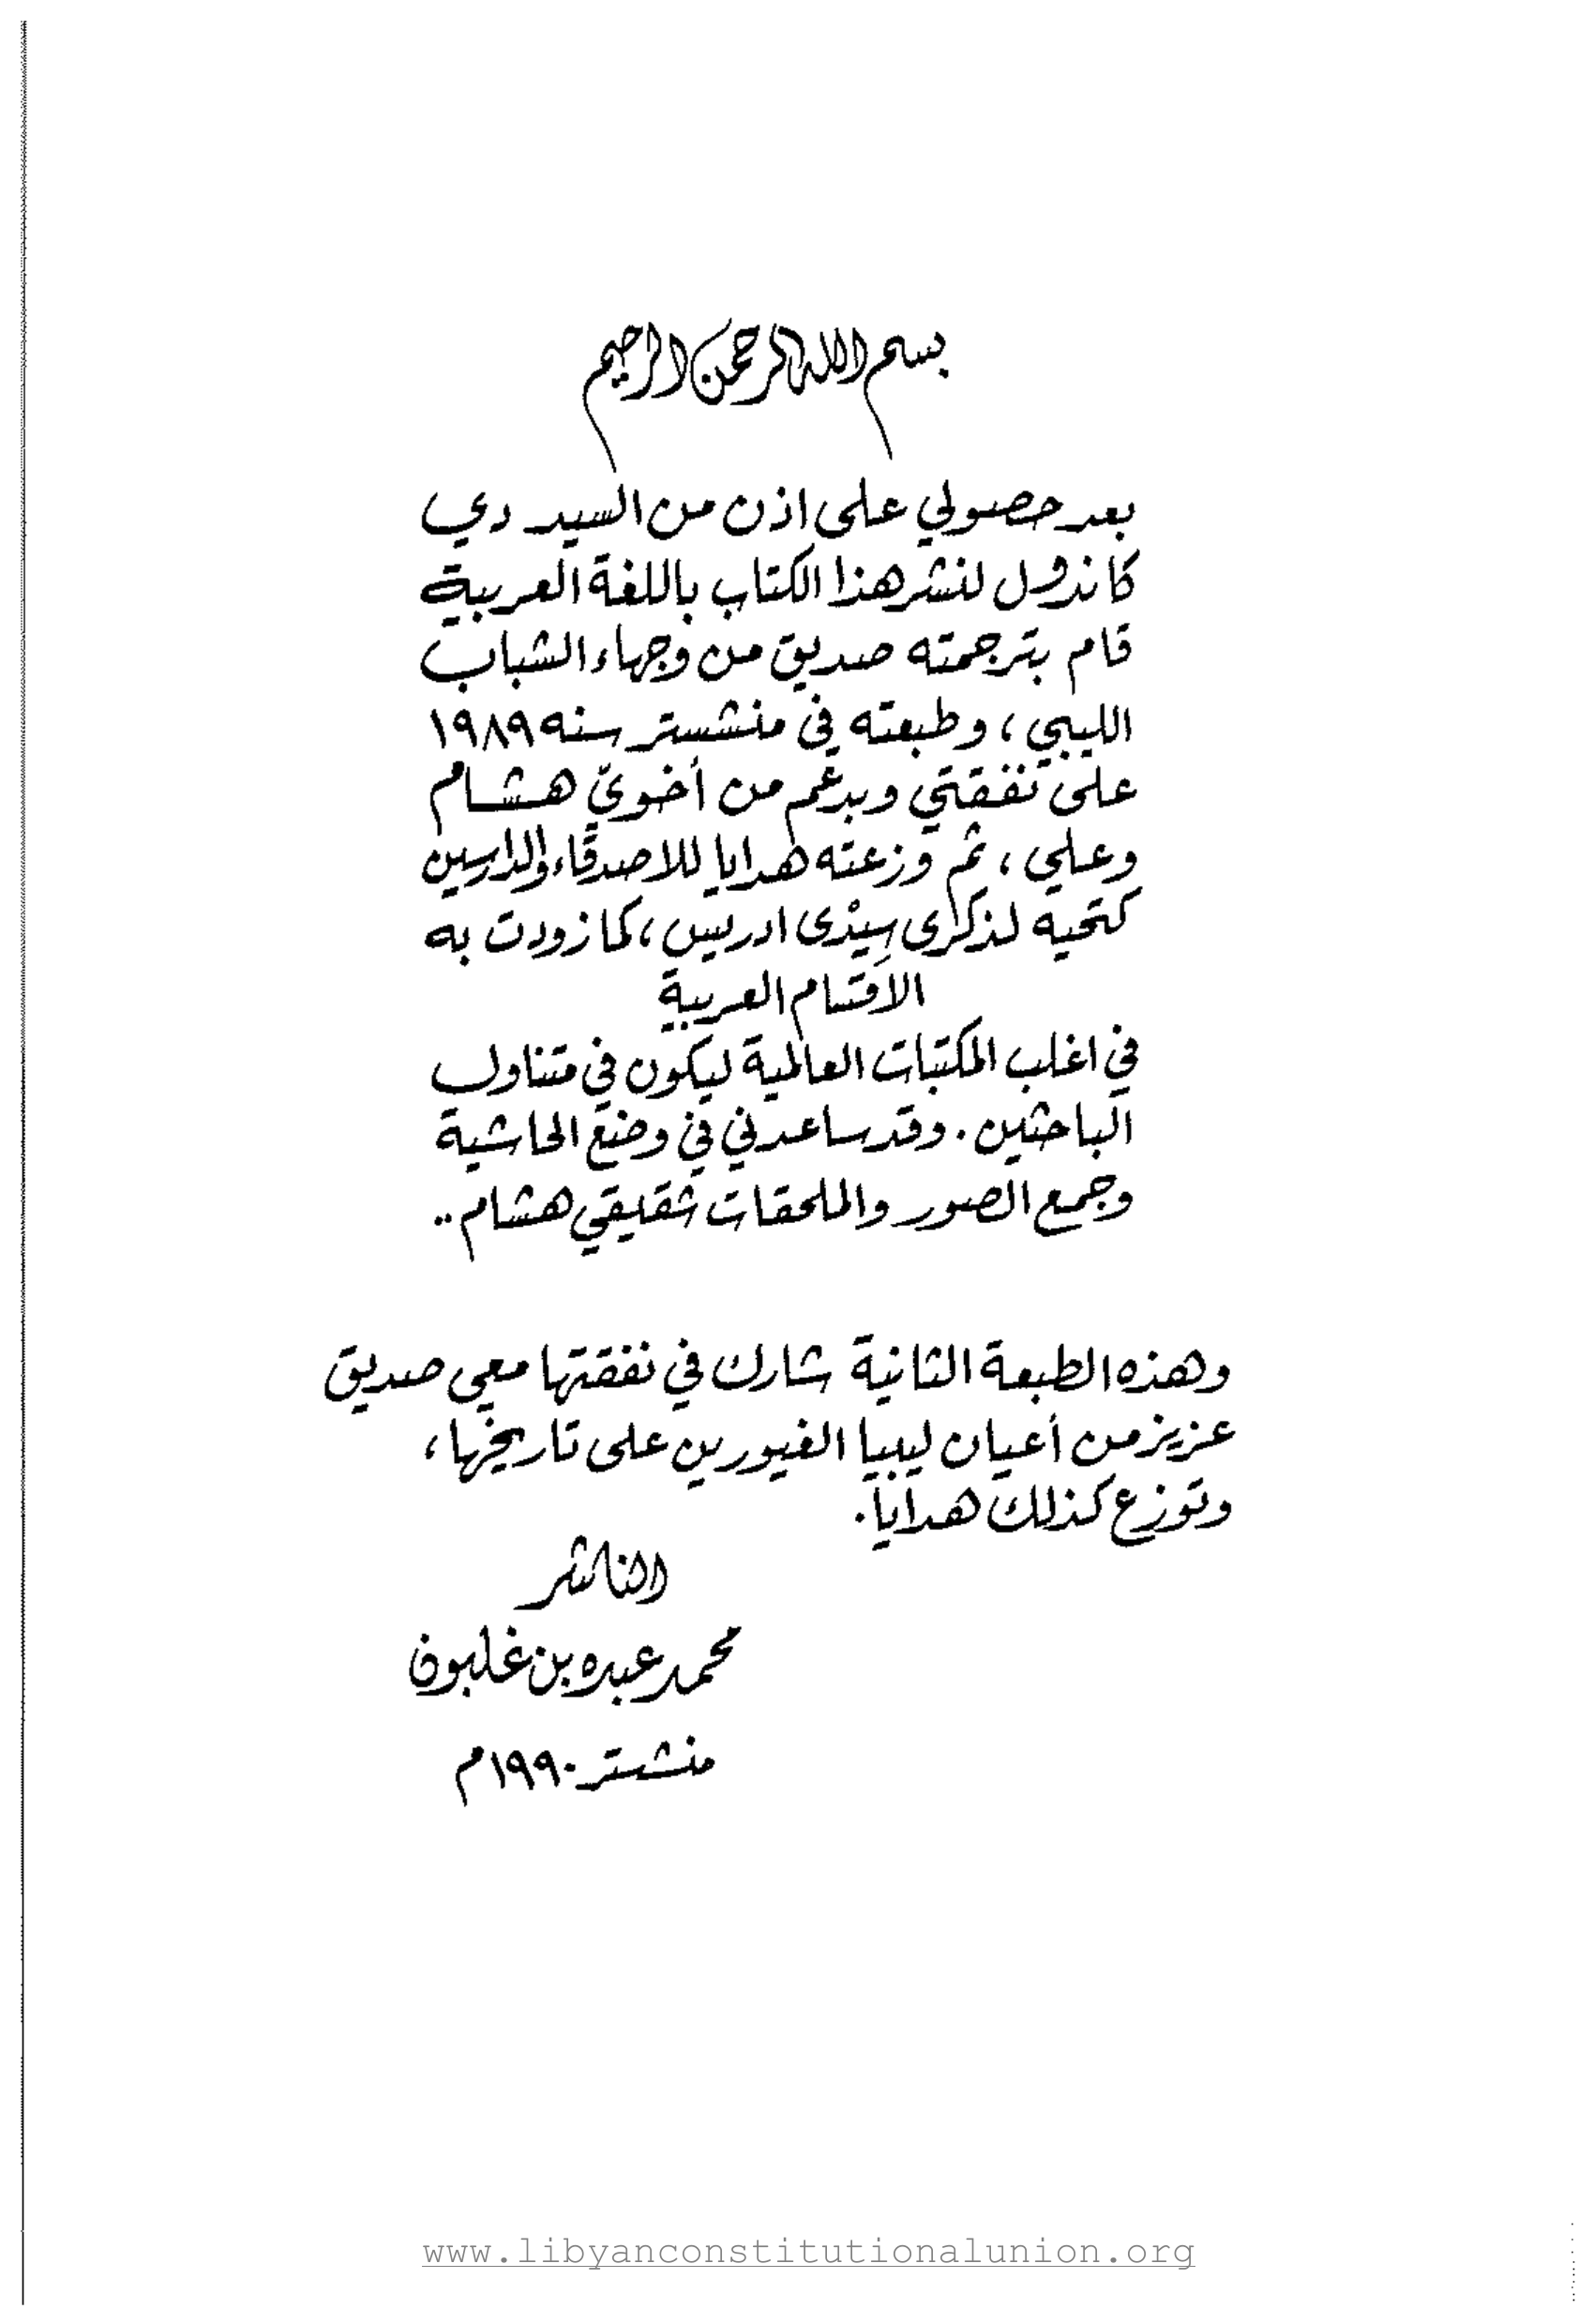 بسم الله الرحمن الرحيم
بعد حصولي على اذن من السيد دي
كاندول لنشر هذا الكتاب باللغة العربية
قام بترجمته صديق من وجهاء الشباب
الليبي ، وطبعته في منشستر سنه ١٩٨٩
على نفقتي وبدعم من أخويّ هشام
وعلي ، ثم وزعته هدايا للاصدقاء والدارسين
كتحيه لذكرى سِيدْى ادريس ، كما زودت به
الاقسام العربية
في اغلب المكتبات العالمية ليكون في متناول
الباحثين . وقد ساعدني في وضع الحاشية
وجمع الصور والملحقات شقيقي هشام ..
وهذه الطبعة الثانية شارك في نفقتها معي صديق
عزيز من أعيان ليبيا الغيورين على تاريخها ،
وتوزع كذلك هدايا .
الناشر
محمد عبده بن غلبون
منشستر ١٩٩٠م
www.libyanconstitutionalunion.org